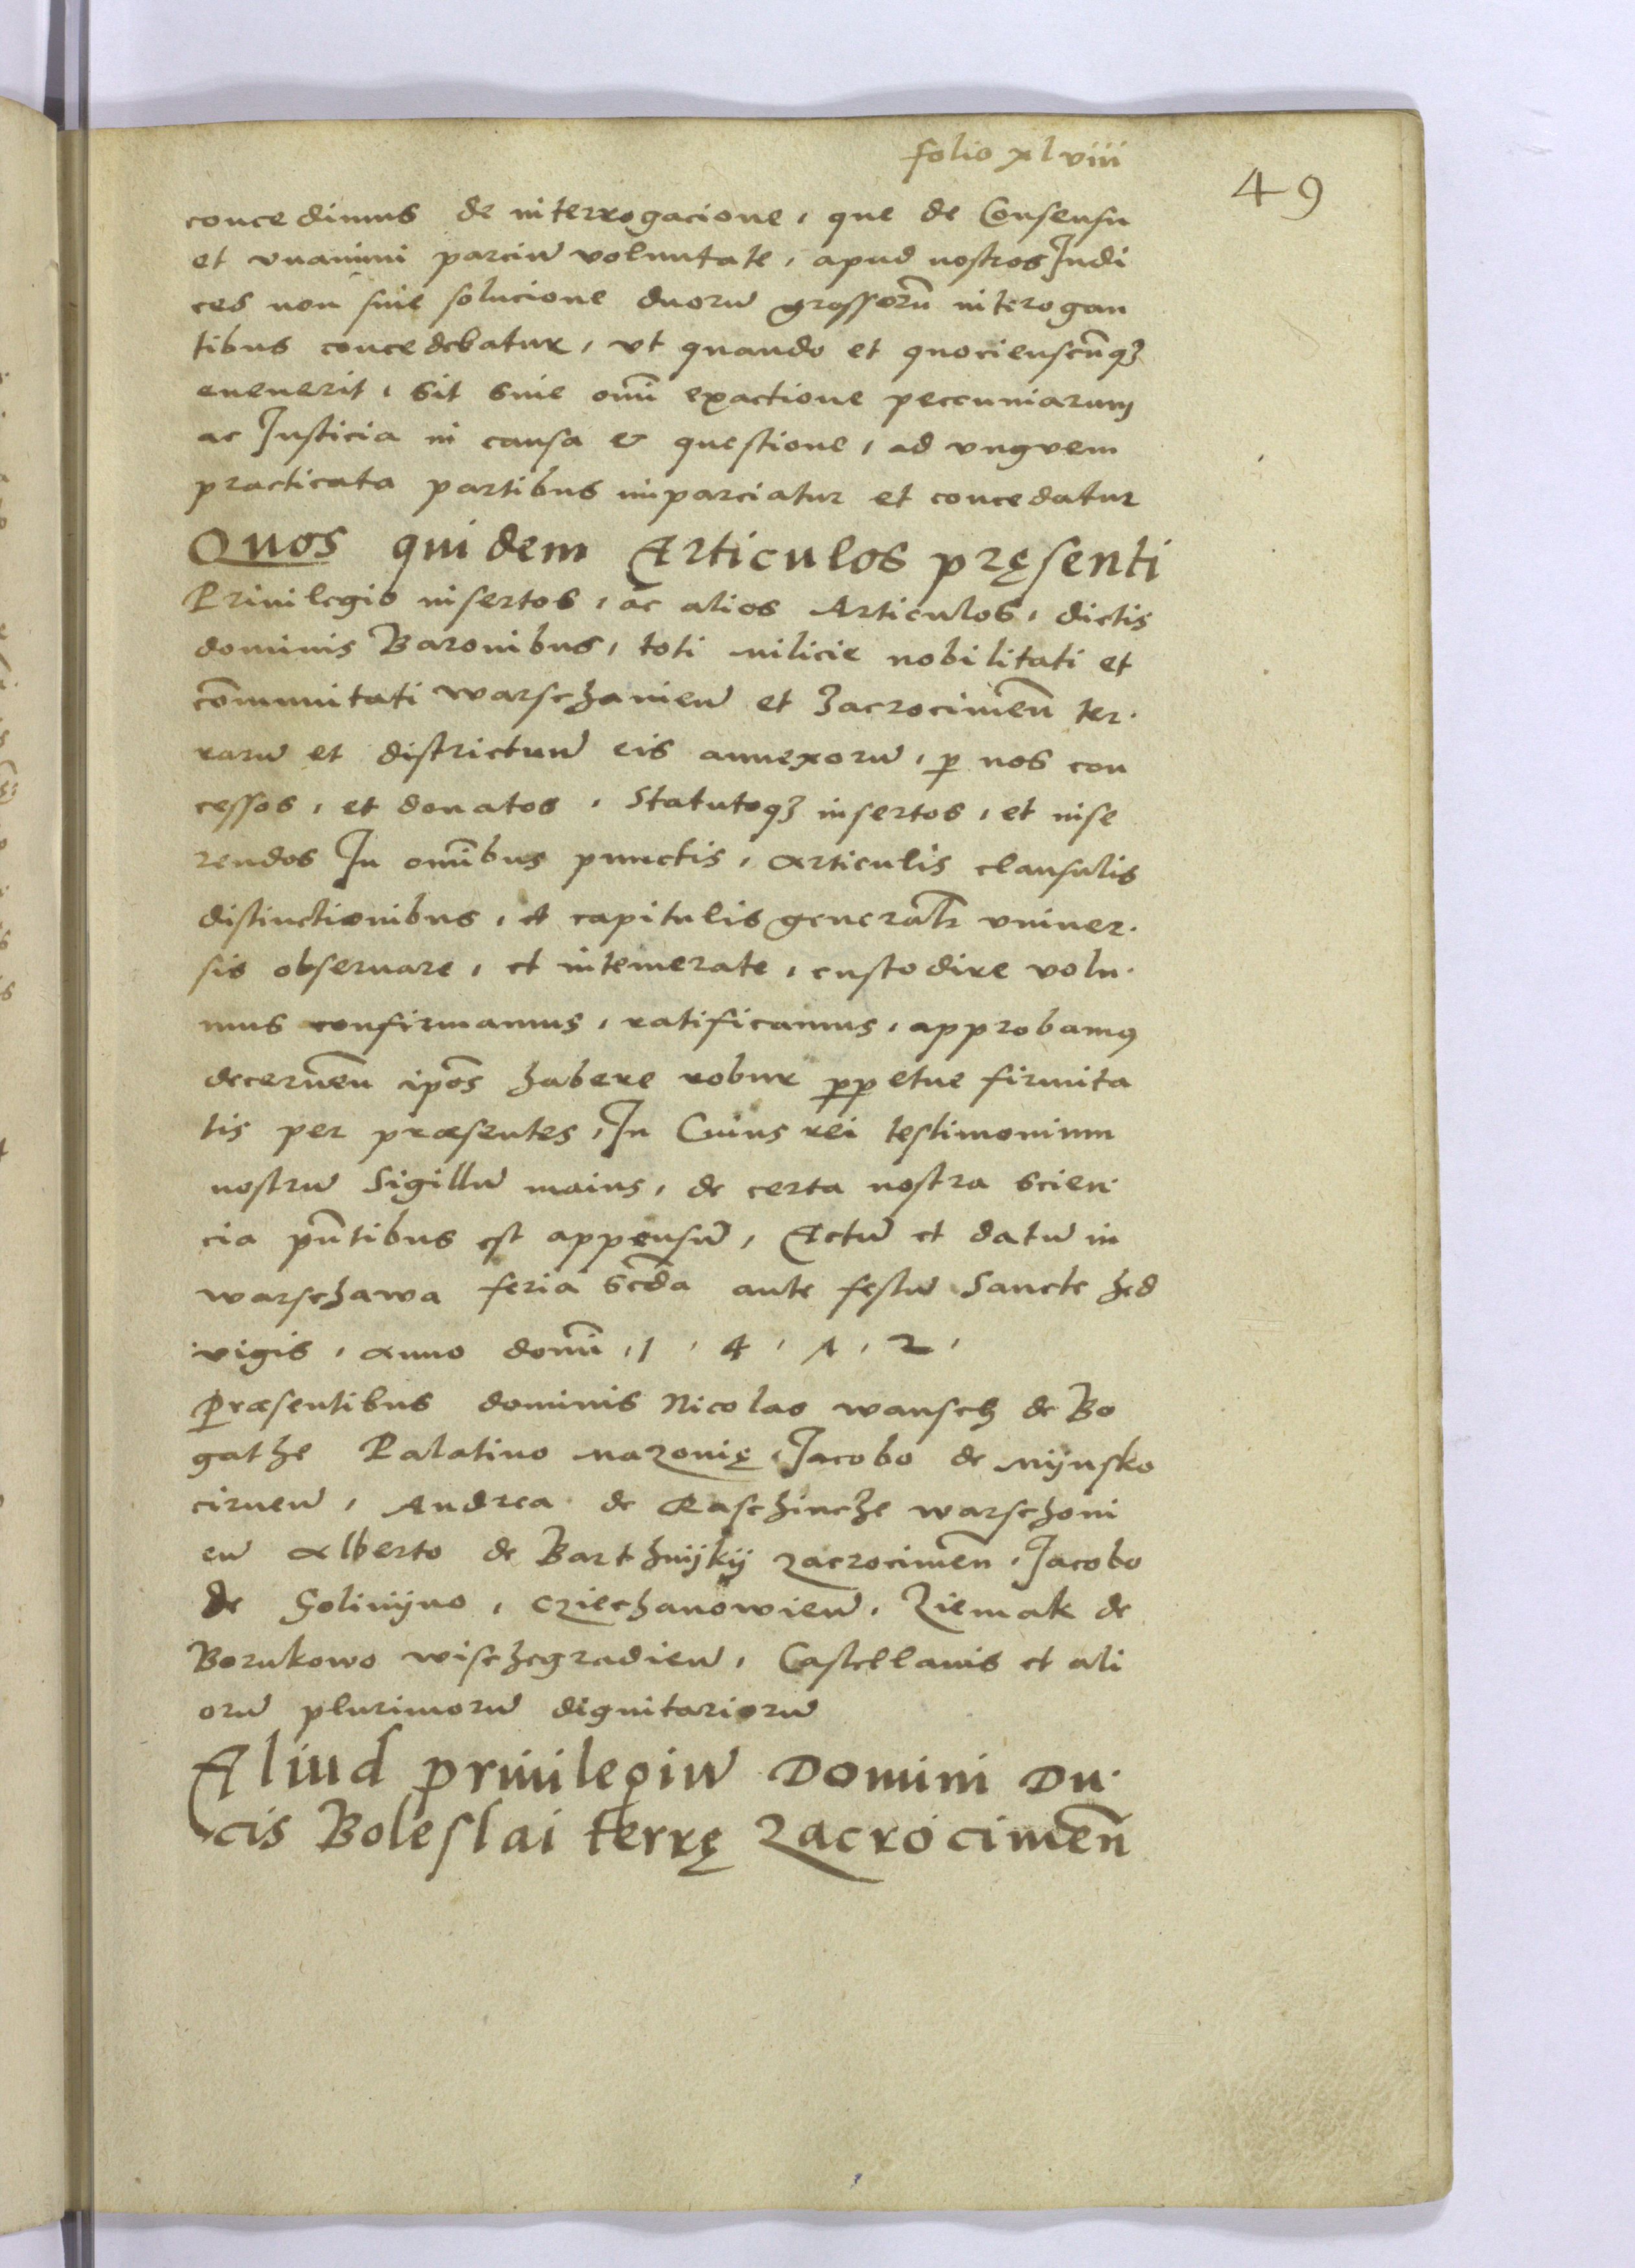 folio xlviii
49
concedimus de interrogacione, que de Consensu
et vnanimi parciũ voluntate, apud nostros Judi
ces non sine solucione duorũ grossorũ interogan
tibus concedebatur, vt quando et quocienscũqꝫ
euenerit, sit sine omĩ exactione peccuniarum
ac Justicia in causa & questione, ad vngvem
practicata partibus imparciatur et concedatur
Quos quidem Articulos pręsenti
Priuilegio insertos, ac alios Articulos, dictis
dominis Baronibus, toti milicie nobilitati et
cõmunitati warschauieñ et Zacrocimeñ ter.
rarũ et districtuũ eis annexorũ, ꝑ nos con
cessos, et donatos, Statutoqꝫ insertos, et inse
rendos In omĩbus punctis, articulis clausulis
distinctionibus, et capitulis generalr vniuer.
sis obseruare, et intemerate, custodire volu.
mus confirmamus, ratificamus, approbamꝰ
decerneñ ip̃os habere robur ꝑpetue firmita
tis per præsentes, In Cuius rei testimonium
nostrũ Sigillũ maius, de certa nostra scien.
cia pñtibus est appensũ, Actũ et datũ in
warschawa feria sc̃da ante festũ Sancte hed
vigis, anno domĩ, 1, 4, 1, 2,
Præsentibus dominis Nicolao wansch de Bo
gathe Palatino mazonię, Jacobo de mijnsko
cirneñ, Andrea de Raschincze warschoui
eñ Alberto de Barthnijkij zacrocimeñ, Jacobo
de Golinijno, Cziechanowieñ, Ziemak de
Borukowo wischegradieñ, Castellanis et ali
orũ plurimorũ dignitariorũ
Aliud priuilegiũ Domini Du.
cis Boleslai terrę Zacrocimeñ